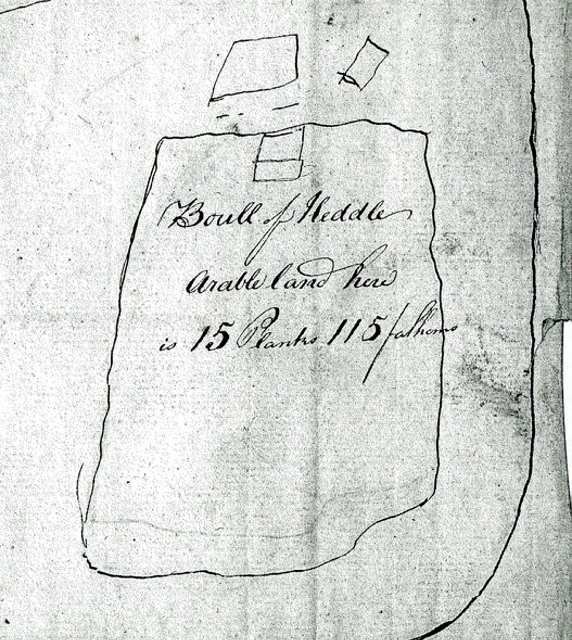 Boull of Heddle
Arable land here
is 15 Planks 115 fathoms